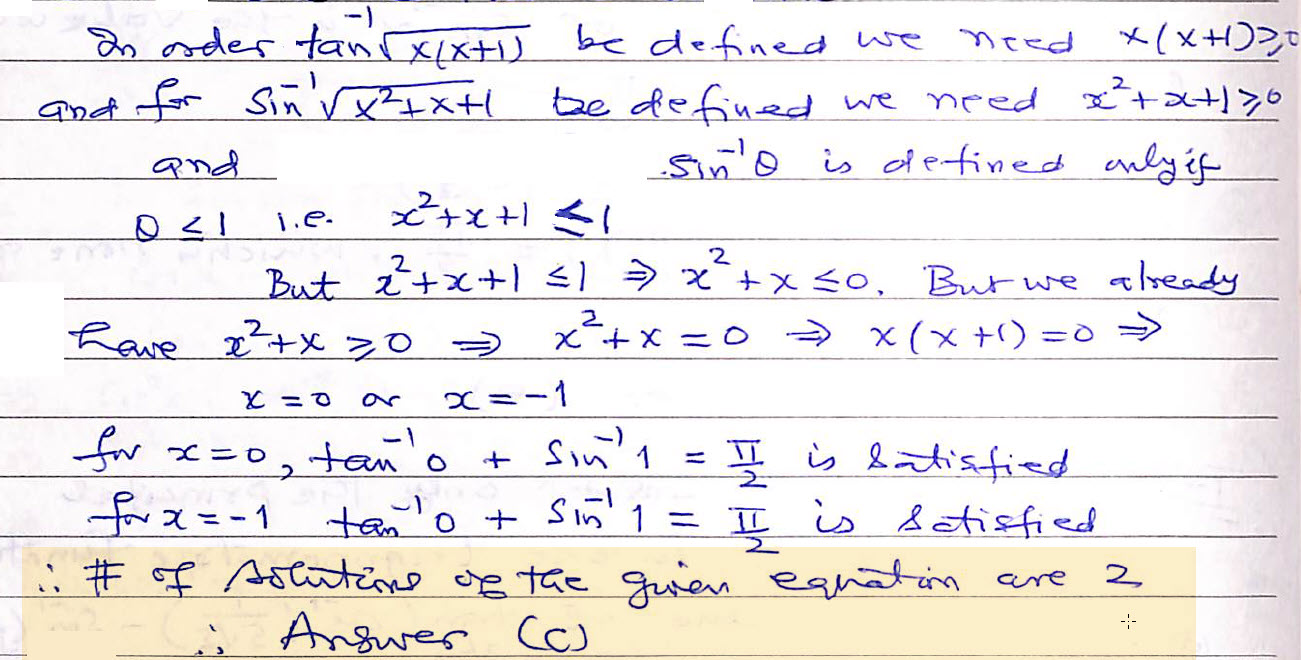 In order tan⁻¹√x(x+1) be defined we need x(x+1)≥0
and for Sin⁻¹√x²+x+1 be defined we need x²+x+1≥0
and sin⁻¹θ is defined only if
θ ≤ 1 i.e. x²+x+1 ≤ 1
But x²+x+1 ≤ 1 ⇒ x²+x ≤ 0. But we already
have x²+x ≥ 0 ⇒ x²+x = 0 ⇒ x(x+1)=0 ⇒
x = 0 or x = -1
for x=0, tan⁻¹0 + Sin⁻¹1 = π/2 is satisfied
for x=-1 tan⁻¹0 + Sin⁻¹1 = π/2 is satisfied
∴ # of solutions of the given equation are 2
∴ Answer (c)